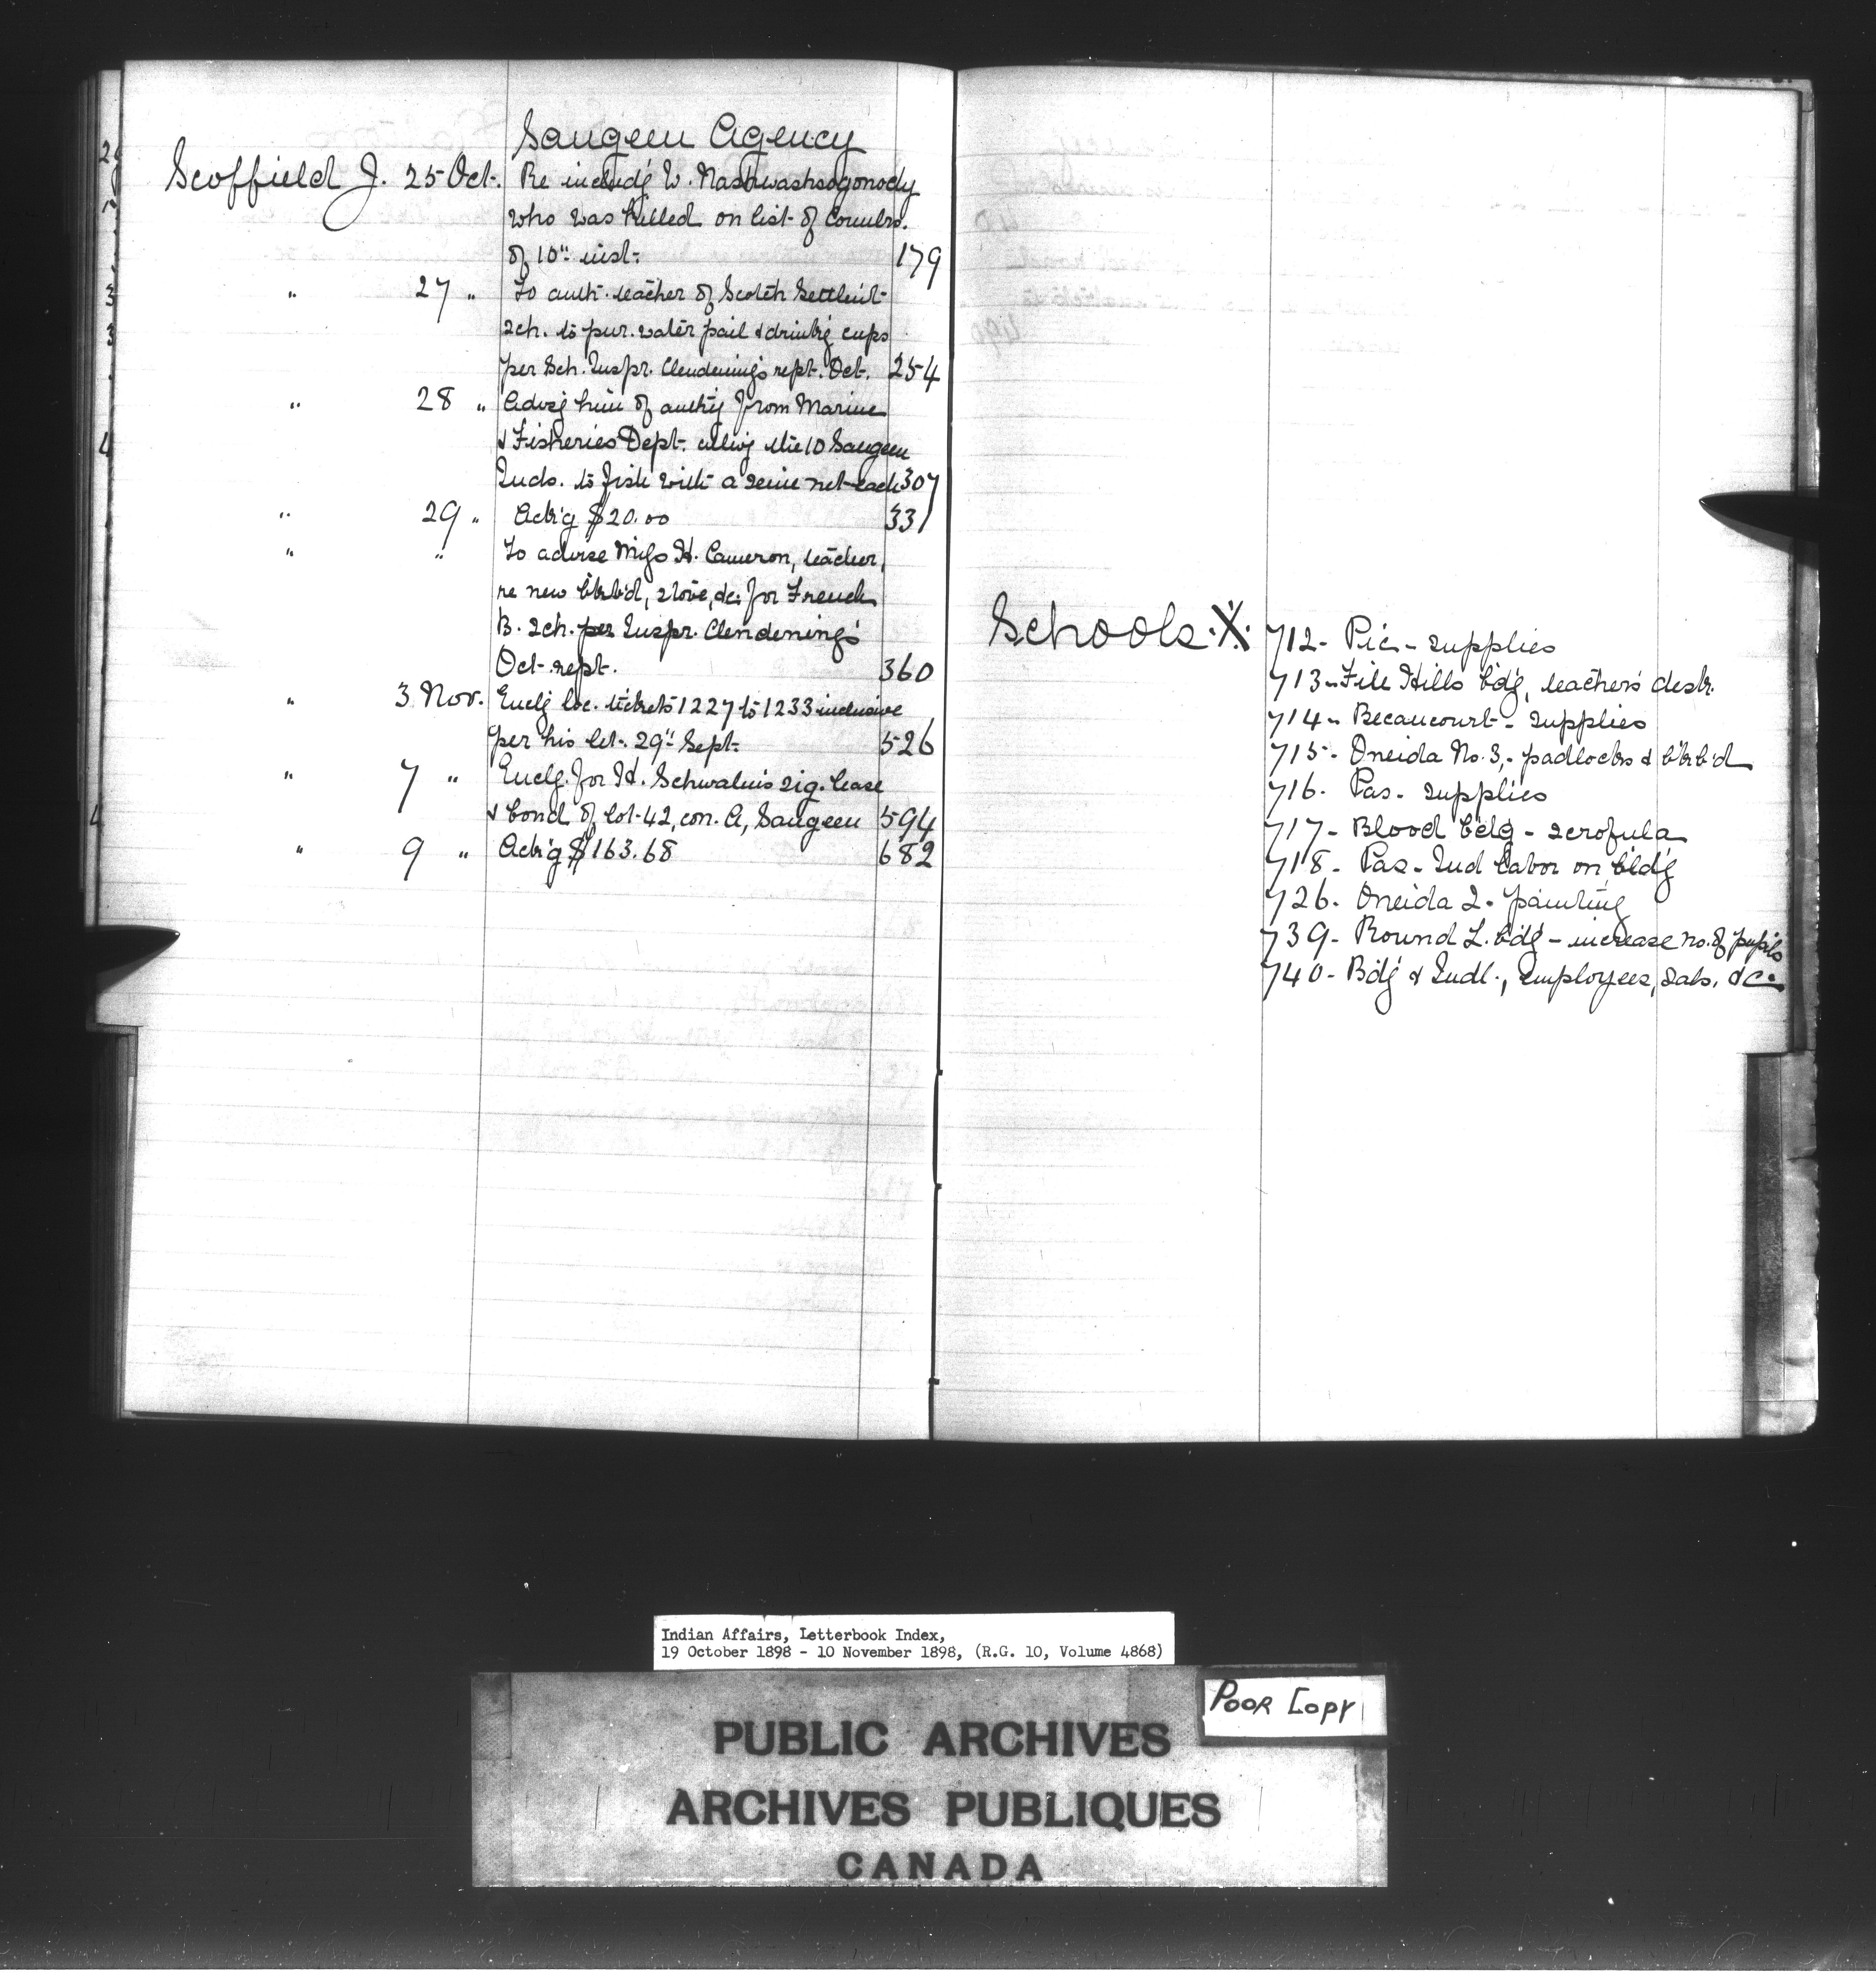 Saugeen Agency
Scoffield J. 25 Oct. Re includ'g W. Nashwashsogonody
who was killed on list of Commbrs.
of 10" inst. 179
" 27 " To auth. teacher of Scotch Settlm't
sch. to pur. water pail & drink'g cups
per Sch. Inspr. Clendening's rept. Oct. 254
" 28 " Advs'g him of auth'y from Marine
& Fisheries Dept. allow'g the 10 Saugeen
Inds. to fish with a seine net each 307
" 29 " Ack'g $20.00 331
" " To advise Miss H. Cameron, teacher,
re new b'kb'd, stove, &c. for French
B. sch. per Inspr. Clendening's
Oct. rept. 360
" 3 Nov. Encl'g loc. tickets 1227 to 1233 inclusive
per his let. 29" Sept. 526
" 7 " Encl'g. for H. Schwalm's sig. lease
& bond of lot 42, con. A, Saugeen 594
" 9 " Ack'g $163.68 682
Schools. X.
712 - Pic - supplies
713 - File Hills b'd'g, teacher's desk.
714 - Becancourt - supplies
715 - Oneida No. 3, - padlocks & b'kb'd
716 - Pas - supplies
717 - Blood bdg - scrofula
718 - Pas - Ind labor on bld'g
726 - Oneida 2 - painting
739 - Round L. b'd'g - increase no. of pupils
740 - Bd'g & Indl., employees, sals. &c.
Indian Affairs, Letterbook Index,
19 October 1898 - 10 November 1898, (R.G. 10, Volume 4868)
POOR COPY
PUBLIC ARCHIVES
ARCHIVES PUBLIQUES
CANADA